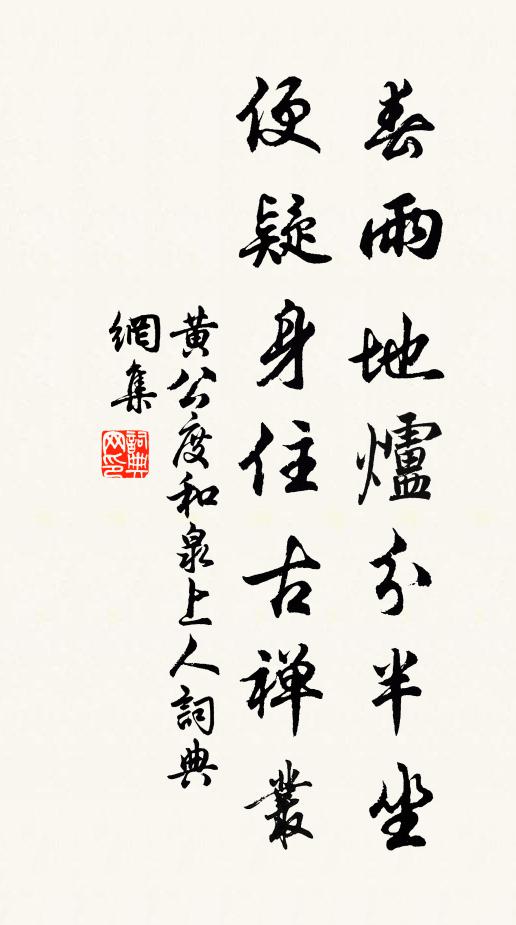 春雨地爐分半坐
便疑身住古禅叢
黄公度和泉上人詞典
網集
詞典
网印